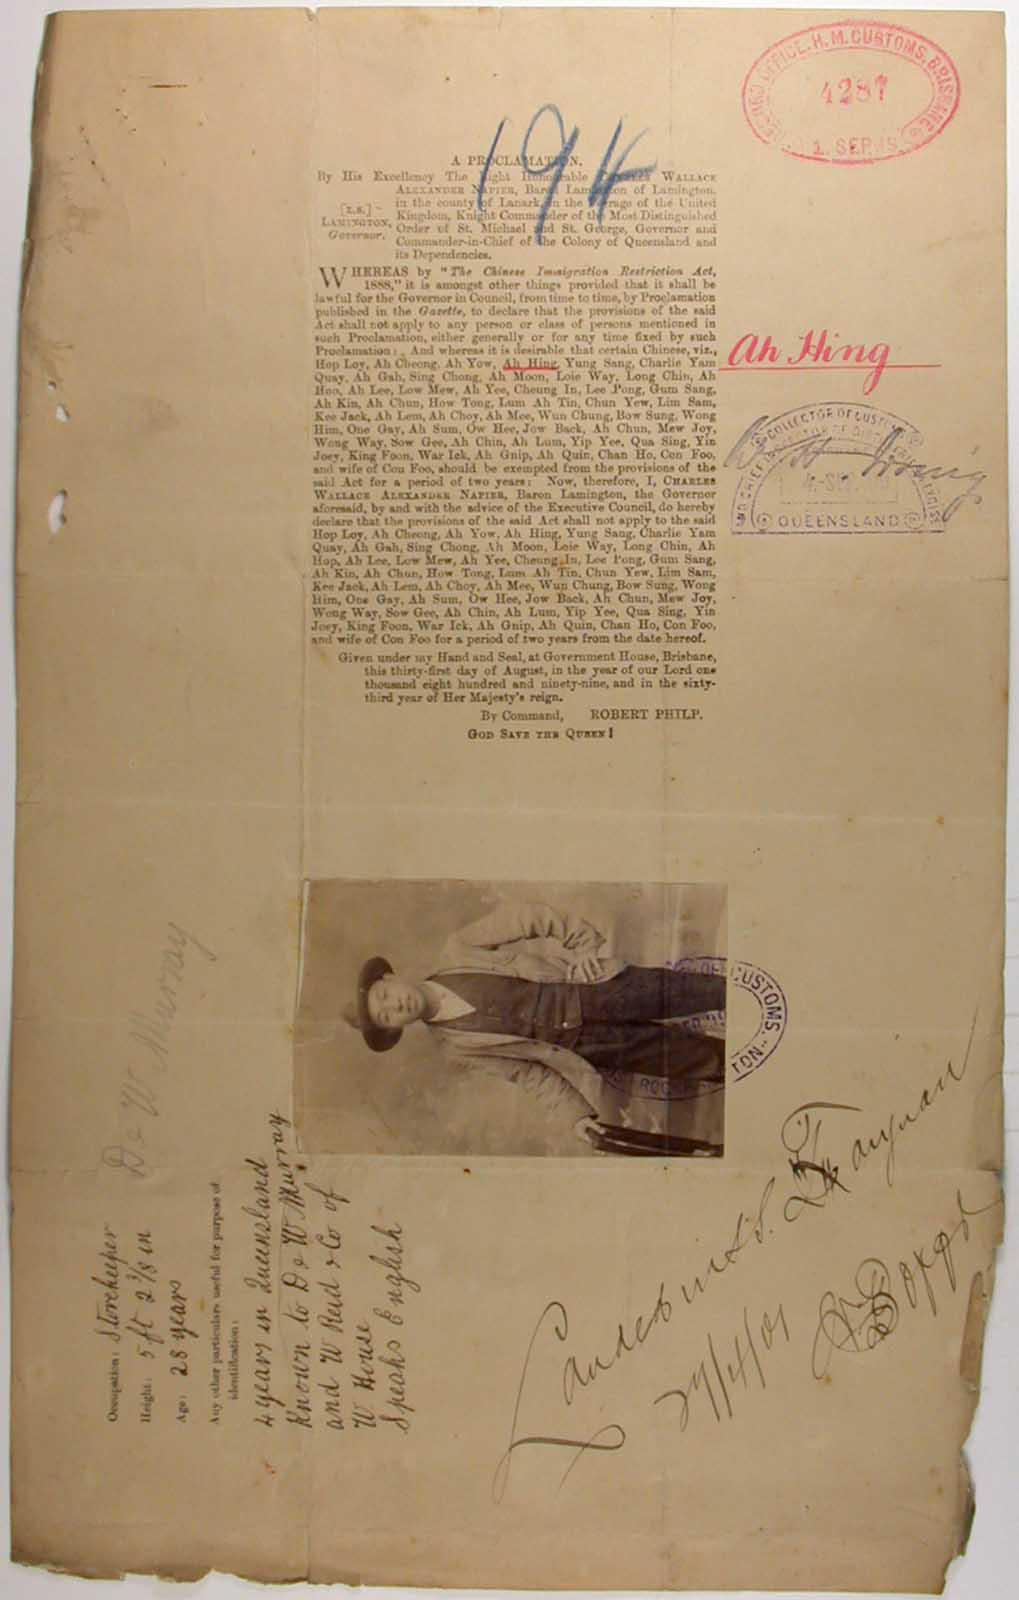 RECORD OFFICE. H. M. CUSTOMS, BRISBANE
4287
1. SEP.
194
A PROCLAMATION.
By His Excellency The Right Honourable CHARLES WALLACE
ALEXANDER NAPIER, Baron Lamington of Lamington,
in the county of Lanark, in the Peerage of the United
[L.S.] Kingdom, Knight Commander of the Most Distinguished
LAMINGTON, Order of St. Michael and St. George, Governor and
Governor. Commander-in-Chief of the Colony of Queensland and
its Dependencies.
WHEREAS by "The Chinese Immigration Restriction Act,
1888," it is amongst other things provided that it shall be
lawful for the Governor in Council, from time to time, by Proclamation
published in the Gazette, to declare that the provisions of the said
Act shall not apply to any person or class of persons mentioned in
such Proclamation, either generally or for any time fixed by such
Proclamation: And whereas it is desirable that certain Chinese, viz.,
Hop Loy, Ah Cheong, Ah Yow, Ah Hing, Yung Sang, Charlie Yam
Quay, Ah Gah, Sing Chong, Ah Moon, Loie Way, Long Chin, Ah
Hoo, Ah Lee, Low Mew, Ah Yee, Cheung In, Lee Pong, Gum Sang,
Ah Kin, Ah Chun, How Tong, Lum Ah Tin, Chun Yew, Lim Sam,
Kee Jack, Ah Lem, Ah Choy, Ah Mee, Wun Chung, Bow Sung, Wong
Him, One Gay, Ah Sum, Ow Hee, Jow Back, Ah Chun, Mew Joy,
Wong Way, Sow Gee, Ah Chin, Ah Lum, Yip Yee, Qua Sing, Yin
Joey, King Foon, War Ick, Ah Gnip, Ah Quin, Chan Ho, Con Foo,
and wife of Con Foo, should be exempted from the provisions of the
said Act for a period of two years: Now, therefore, I, CHARLES
WALLACE ALEXANDER NAPIER, Baron Lamington, the Governor
aforesaid, by and with the advice of the Executive Council, do hereby
declare that the provisions of the said Act shall not apply to the said
Hop Loy, Ah Cheong, Ah Yow, Ah Hing, Yung Sang, Charlie Yam
Quay, Ah Gah, Sing Chong, Ah Moon, Loie Way, Long Chin, Ah
Hop, Ah Lee, Low Mew, Ah Yee, Cheung In, Lee Pong, Gum Sang,
Ah Kin, Ah Chun, How Tong, Lum Ah Tin, Chun Yew, Lim Sam,
Kee Jack, Ah Lem, Ah Choy, Ah Mee, Wun Chung, Bow Sung, Wong
Him, One Gay, Ah Sum, Ow Hee, Jow Back, Ah Chun, Mew Joy,
Wong Way, Sow Gee, Ah Chin, Ah Lum, Yip Yee, Qua Sing, Yin
Joey, King Foon, War Ick, Ah Gnip, Ah Quin, Chan Ho, Con Foo,
and wife of Con Foo for a period of two years from the date hereof.
Given under my Hand and Seal, at Government House, Brisbane,
this thirty-first day of August, in the year of our Lord one
thousand eight hundred and ninety-nine, and in the sixty-
third year of Her Majesty's reign.
By Command, ROBERT PHILP.
GOD SAVE THE QUEEN!
Ah Hing
COLLECTOR OF CUSTOMS
QUEENSLAND
OF CUSTOMS.
TON
Occupation: Storekeeper
Height: 5 ft 2 3/8 in
Age: 28 years
Any other particulars useful for purpose of
identification:
4 years in Queensland
Known to D & W Murray
and W Reid & Co of
W House
Speaks English
D & W Murray
Landed
29/4/01